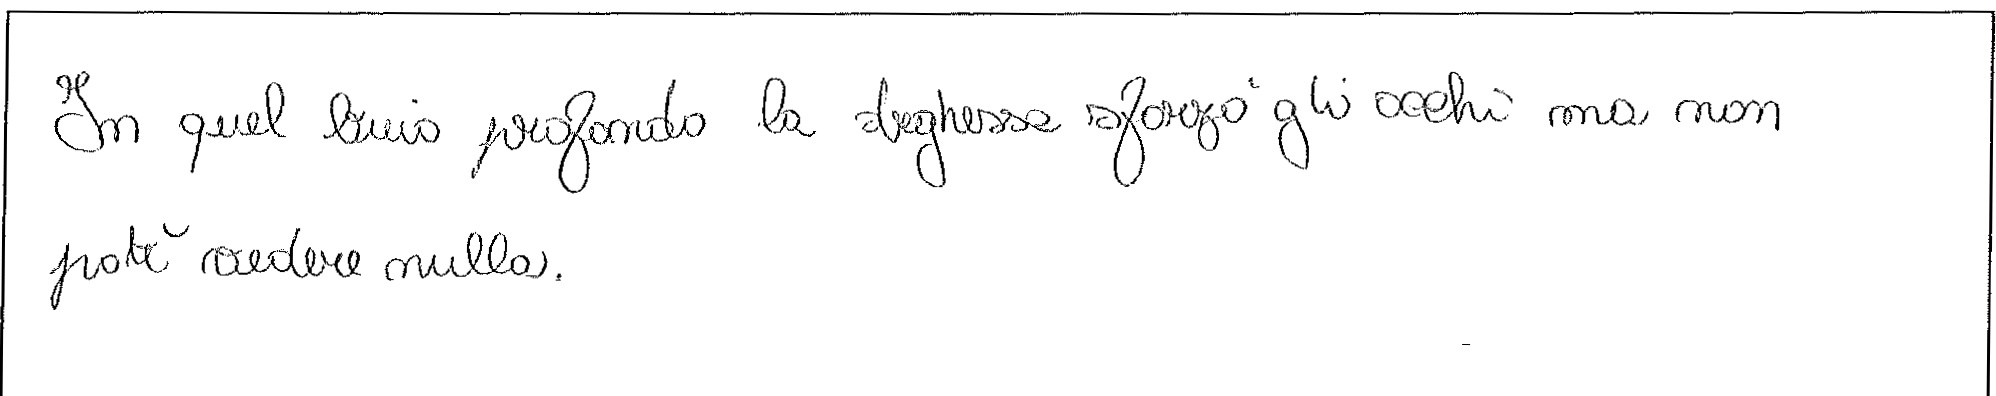 In quel buio profondo la streghessa sforzò gli occhi ma non
potè vedere nulla.